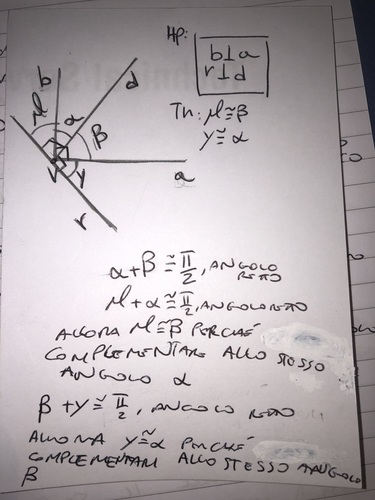 HP: b⊥a
r⊥d
TH: μ≅β
γ≅α
b
d
μ
α
β
V
γ
a
r
α+β≅π/2, ANGOLO RETTO
μ+α≅π/2, ANGOLO RETTO
ALLORA μ≅β PERCHÉ
COMPLEMENTARI ALLO STESSO
ANGOLO α
β+γ≅π/2, ANGOLO RETTO
ALLORA γ≅α PERCHÉ
COMPLEMENTARI ALLO STESSO ANGOLO
β